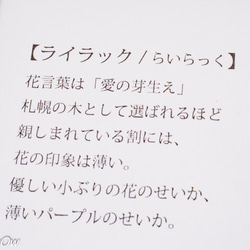 【ライラック/らいらっく】
花言葉は「愛の芽生え」
札幌の木として選ばれるほど
親しまれている割には、
花の印象は薄い。
優しい小ぶりの花のせいか、
薄いパープルのせいか。